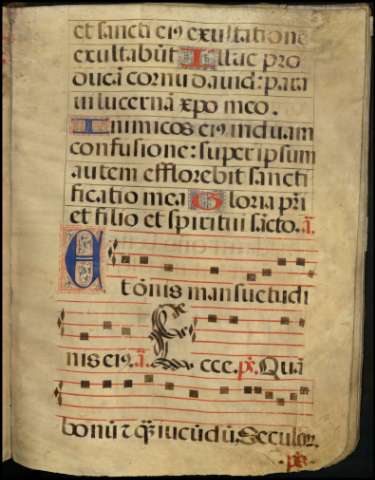 et sancti eiꝰ exultatione
exultabūt Illuc pro
ducā cornu dauid: para
ui lucernā xpo meo.
Inimicos eiꝰ induam
confusione: super ipsum
autem efflorebit sancti
ficatio mea Gloria pr̄i
et filio et spiritui sācto. ā.
E
t ōnis mansuetudi
nis eiꝰ. ā. Ecce. pͫ. Quā
bonū ⁊ qꝫ iucūdū. Seculoꝝ.
pͫ.